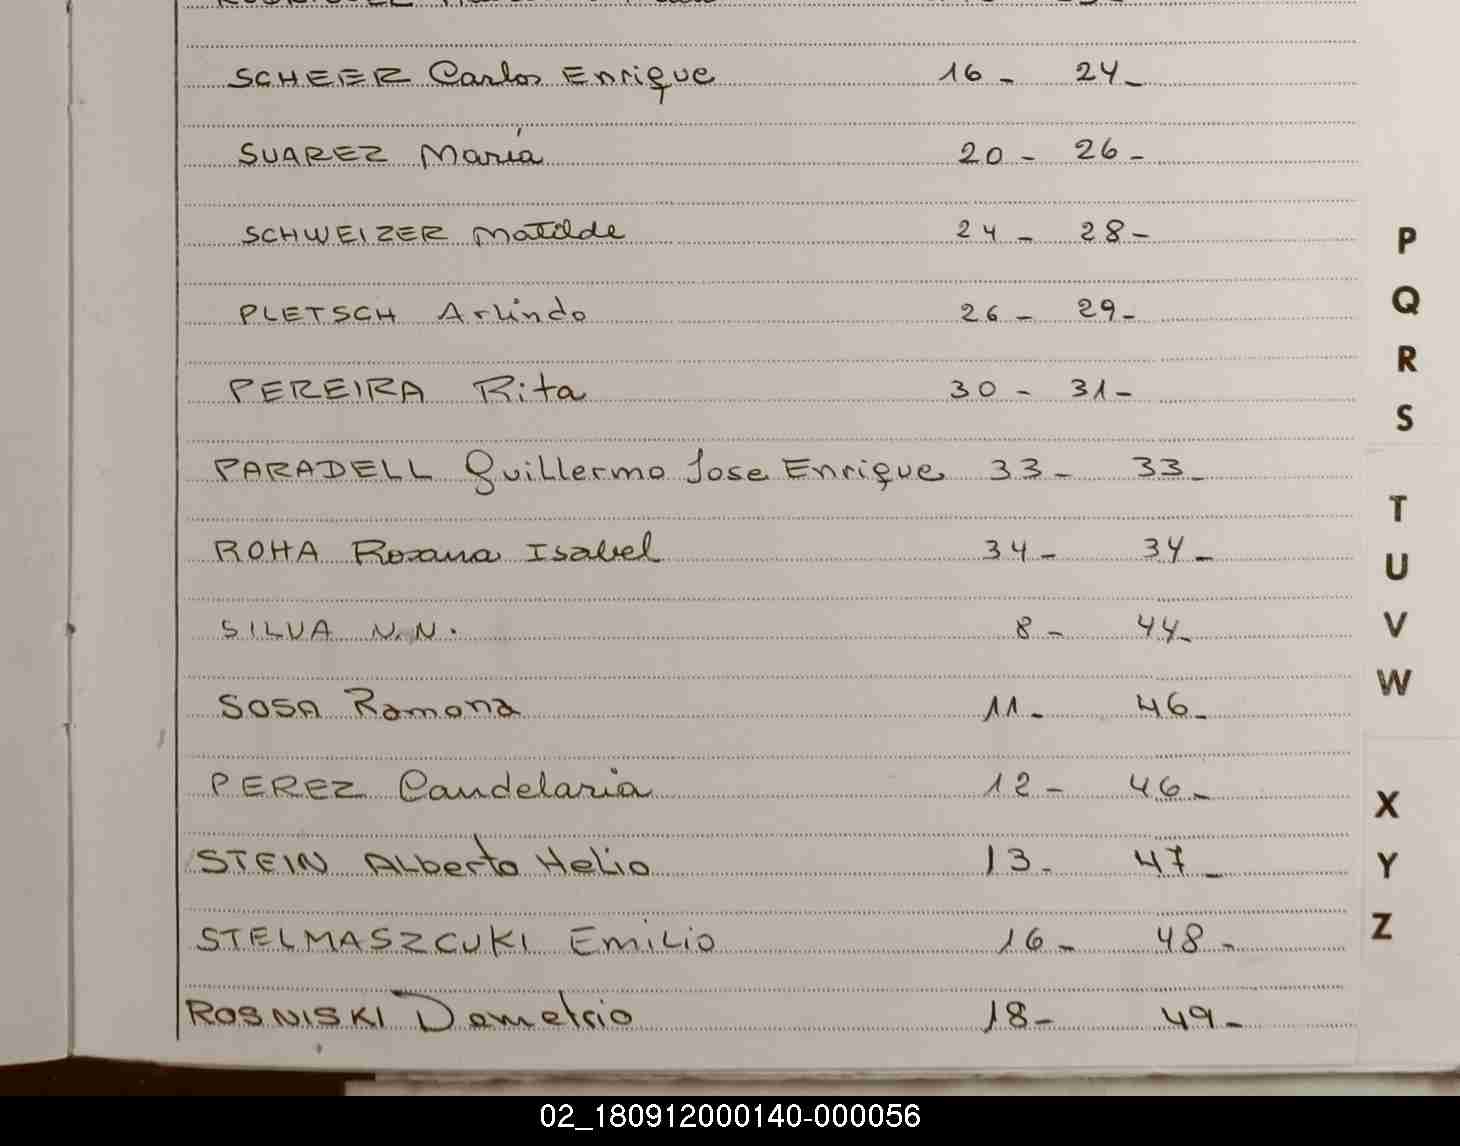 SCHEER Carlos Enrique 16 - 24 -
SUAREZ María 20 - 26 -
SCHWEIZER Matilde 24 - 28 -
PLETSCH Arlindo 26 - 29 -
PEREIRA Rita 30 - 31 -
PARADELL Guillermo Jose Enrique 33 - 33 -
ROHA Roxana Isabel 34 - 34 -
SILVA N.N. 8 - 44 -
SOSA Ramona 11 - 46 -
PEREZ Candelaria 12 - 46 -
STEIN Alberto Helio 13 - 47 -
STELMASZCUKI Emilio 16 - 48 -
ROSNISKI Demetrio 18 - 49 -
P
Q
R
S
T
U
V
W
X
Y
Z
02_180912000140-000056